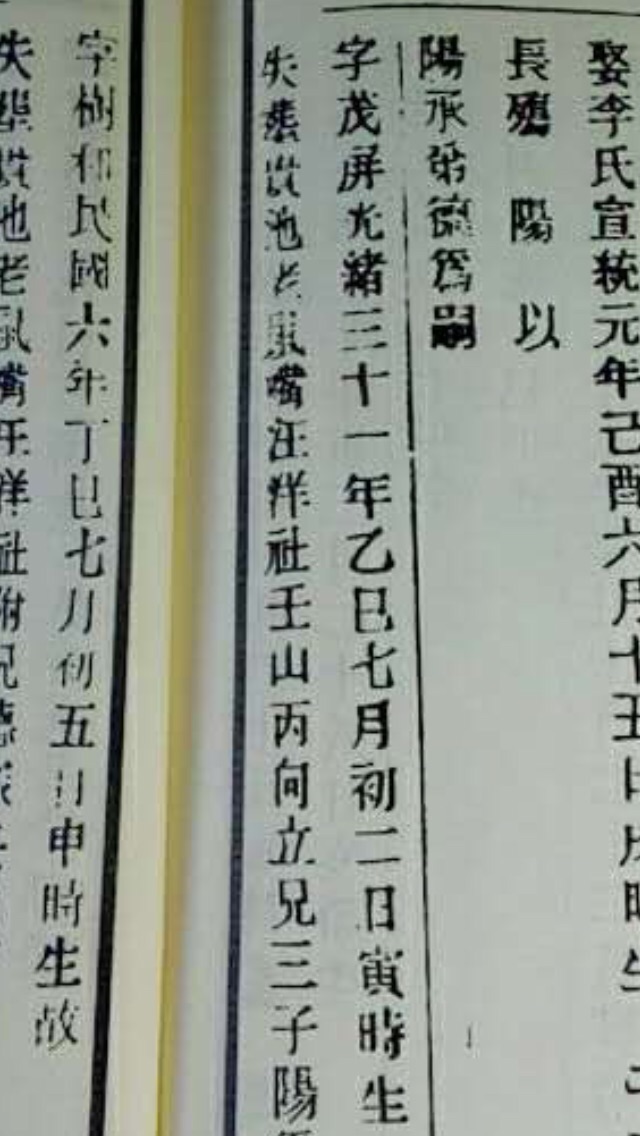 娶李氏宣統元年己酉六月十五日戌時生
長殤 陽 以
陽承弟德爲嗣
字茂屏光緒三十一年乙巳七月初二日寅時生
失葬貴池老鼠嘴汪洋社壬山丙向立兄三子陽
字樹和民國六年丁巳七月初五日申時生故
失葬貴池老鼠嘴汪洋社附兄德